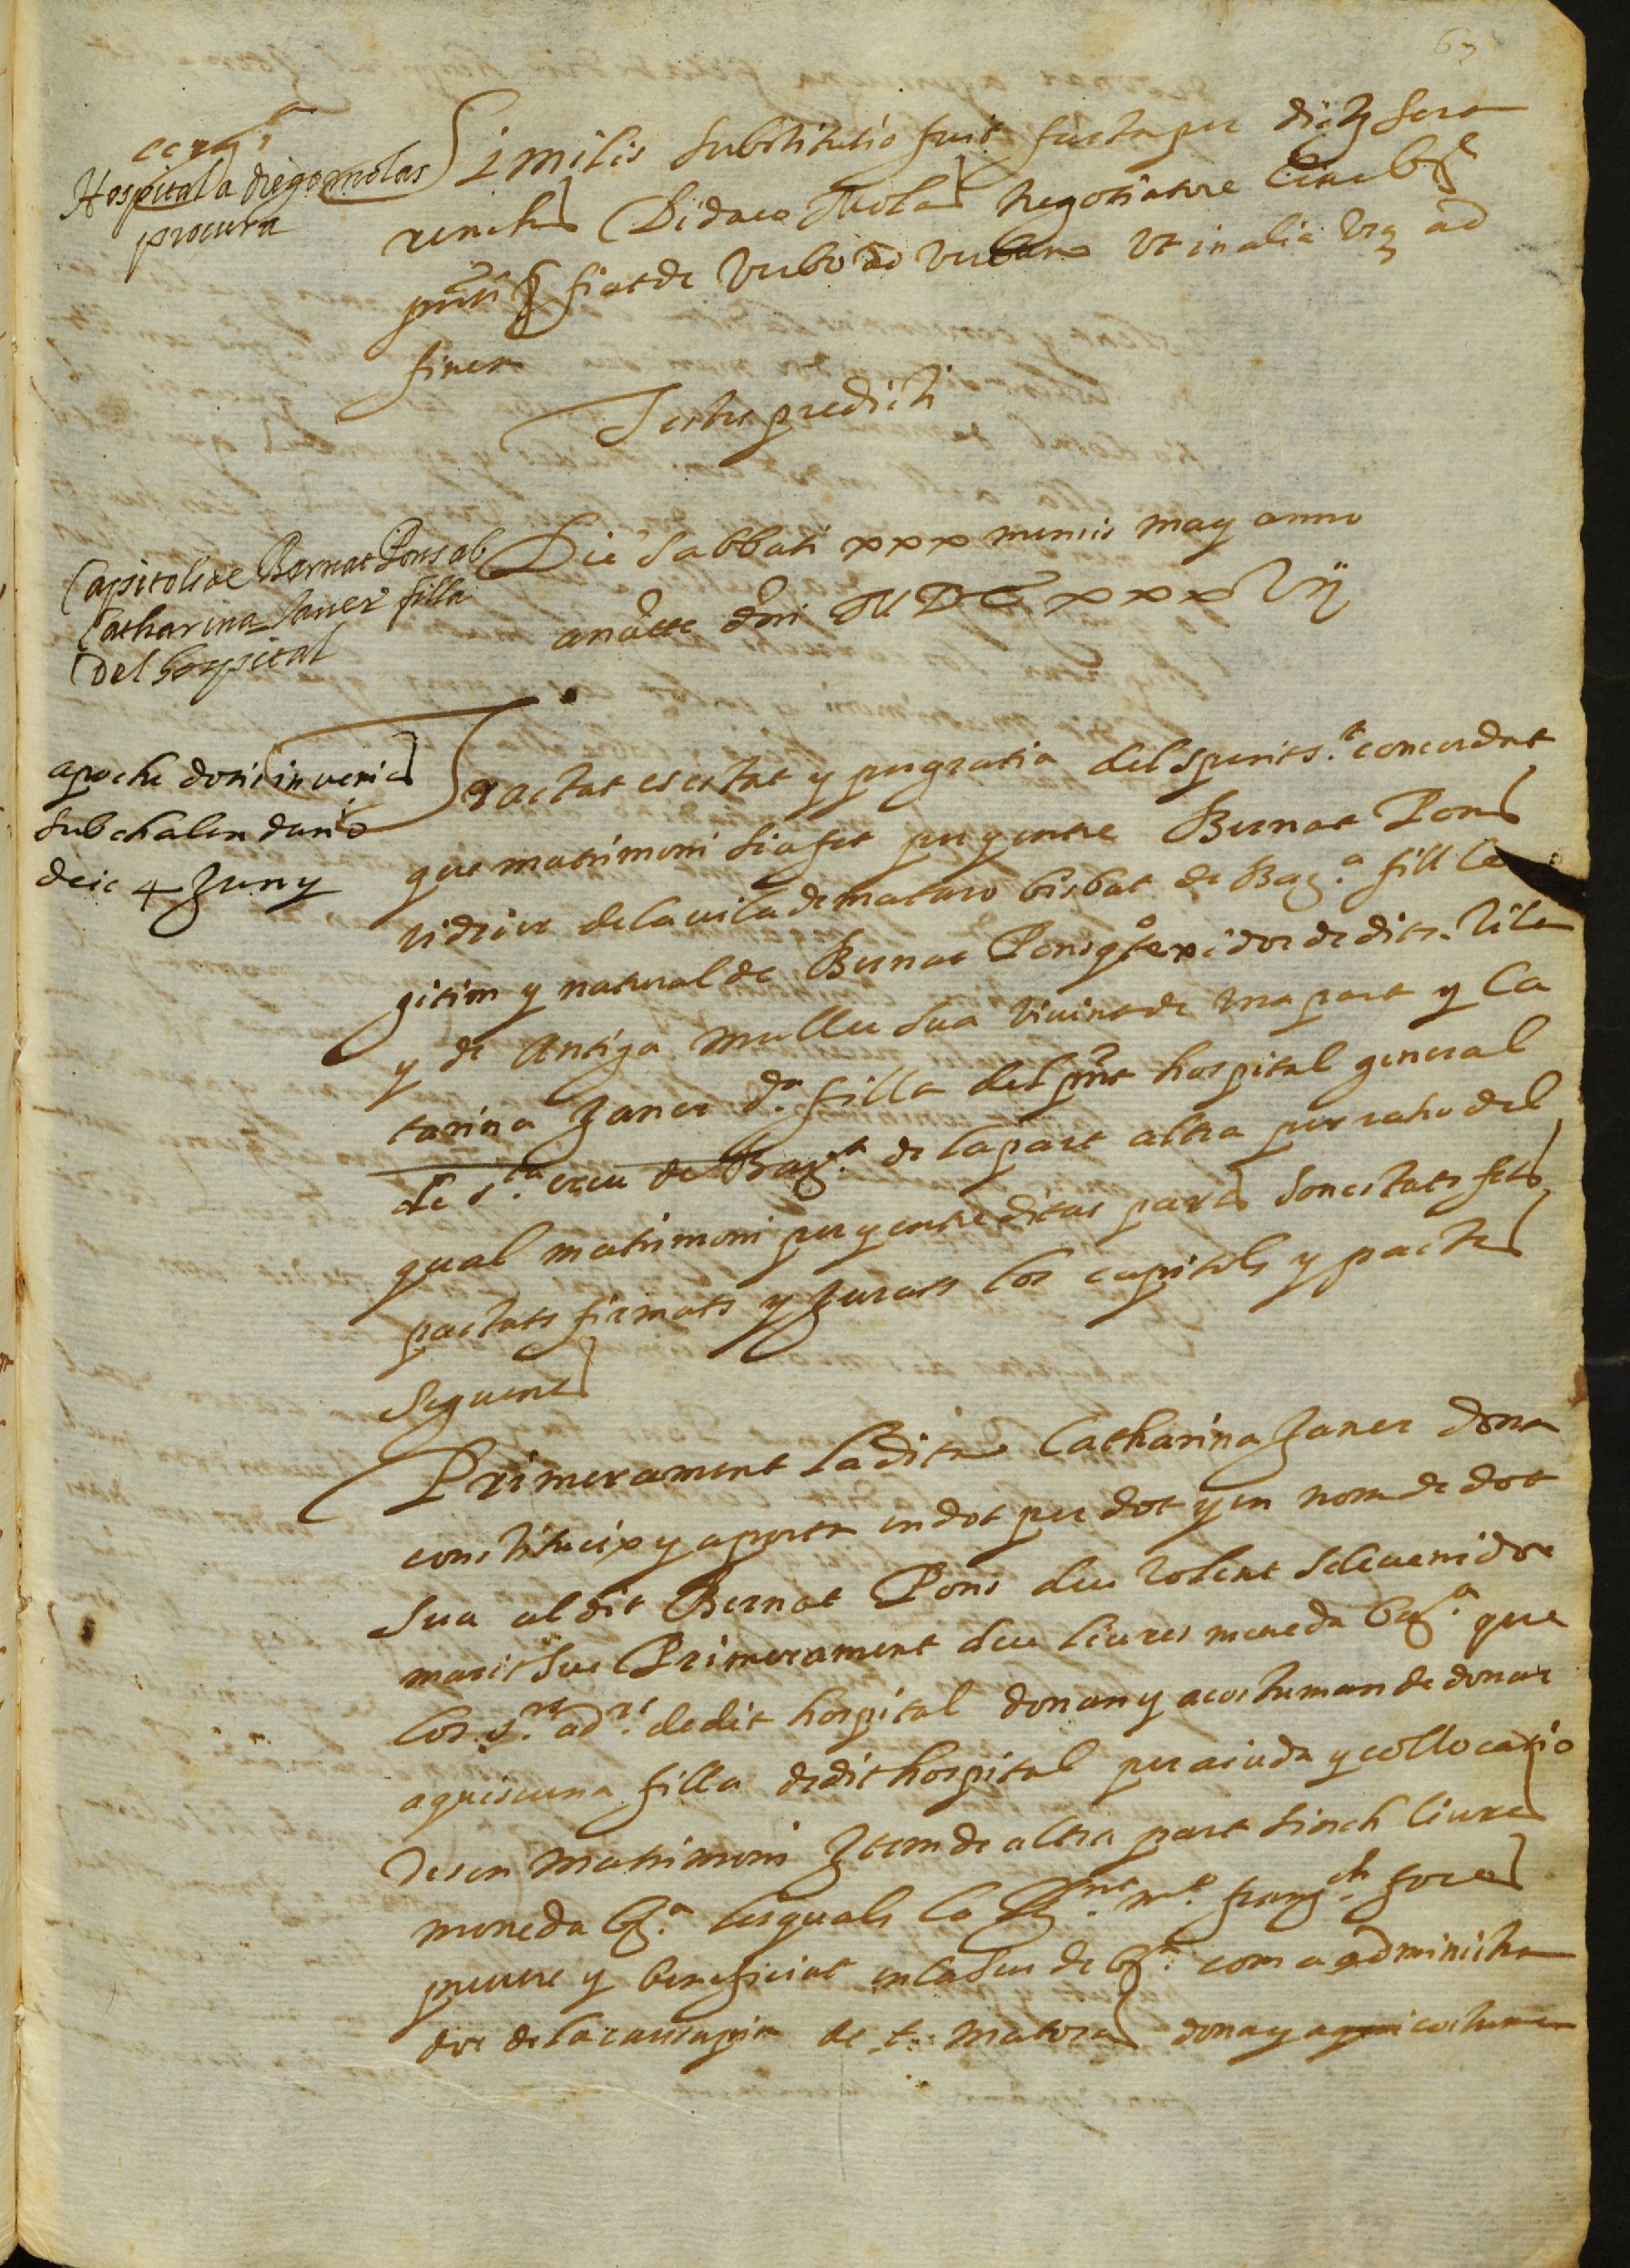 67
Hospital a diego molas
procura
Similis substitutio fuit facta per dictũ fera
rench Didaco Molas negotiatore Cive
pñti fiat de verbo ad verbum ut in alia ad
finem
Testes predicti
Capitols de Bernat Pons ab
Catharina Janer filla
del hospital
Die sabbati xxx mensis may anno
a natte dñi MDCxxxVij
apocha dotis invenies
sub chalendario
de ie 4 Juny
Tractat es estat y per gratia del spirit s.t concordat
que matrimoni sia fet per y entre Bernat Pons
vidrier de la vila de mataro bisbat de Bar.a fill le
gitim y natural de Bernat Pons q.o texidor de dita vila
y de Antiga muller sua vivint de una part y Ca
tarina Janer d.a filla del pñt hospital general
de s.ta creu de Bar.a de la part altra per raho del
qual matrimoni per y entre ditas parts son estats fets
pactats firmats y jurats los capitols y pactes
seguents
Primerament la dita Catharina Janer dona
constitueix y aporta en dot per dot y en nom de dot
sua al dit Bernat Pons deu volent sdevenidor
marit seu Primerament deu liures moneda b.a que
los s.rs ad.rs de dit hospital donan y acostuman de donar
a quiscuna filla de dit hospital per aiuda y collocatio
de son matrimoni Item de altra part sinch liures
moneda b.a les quals lo m.o fran.ch fores
prevere y beneficiat en la Seu de b.a com a administra
dor de la causa pia de matoses dona y acostuma